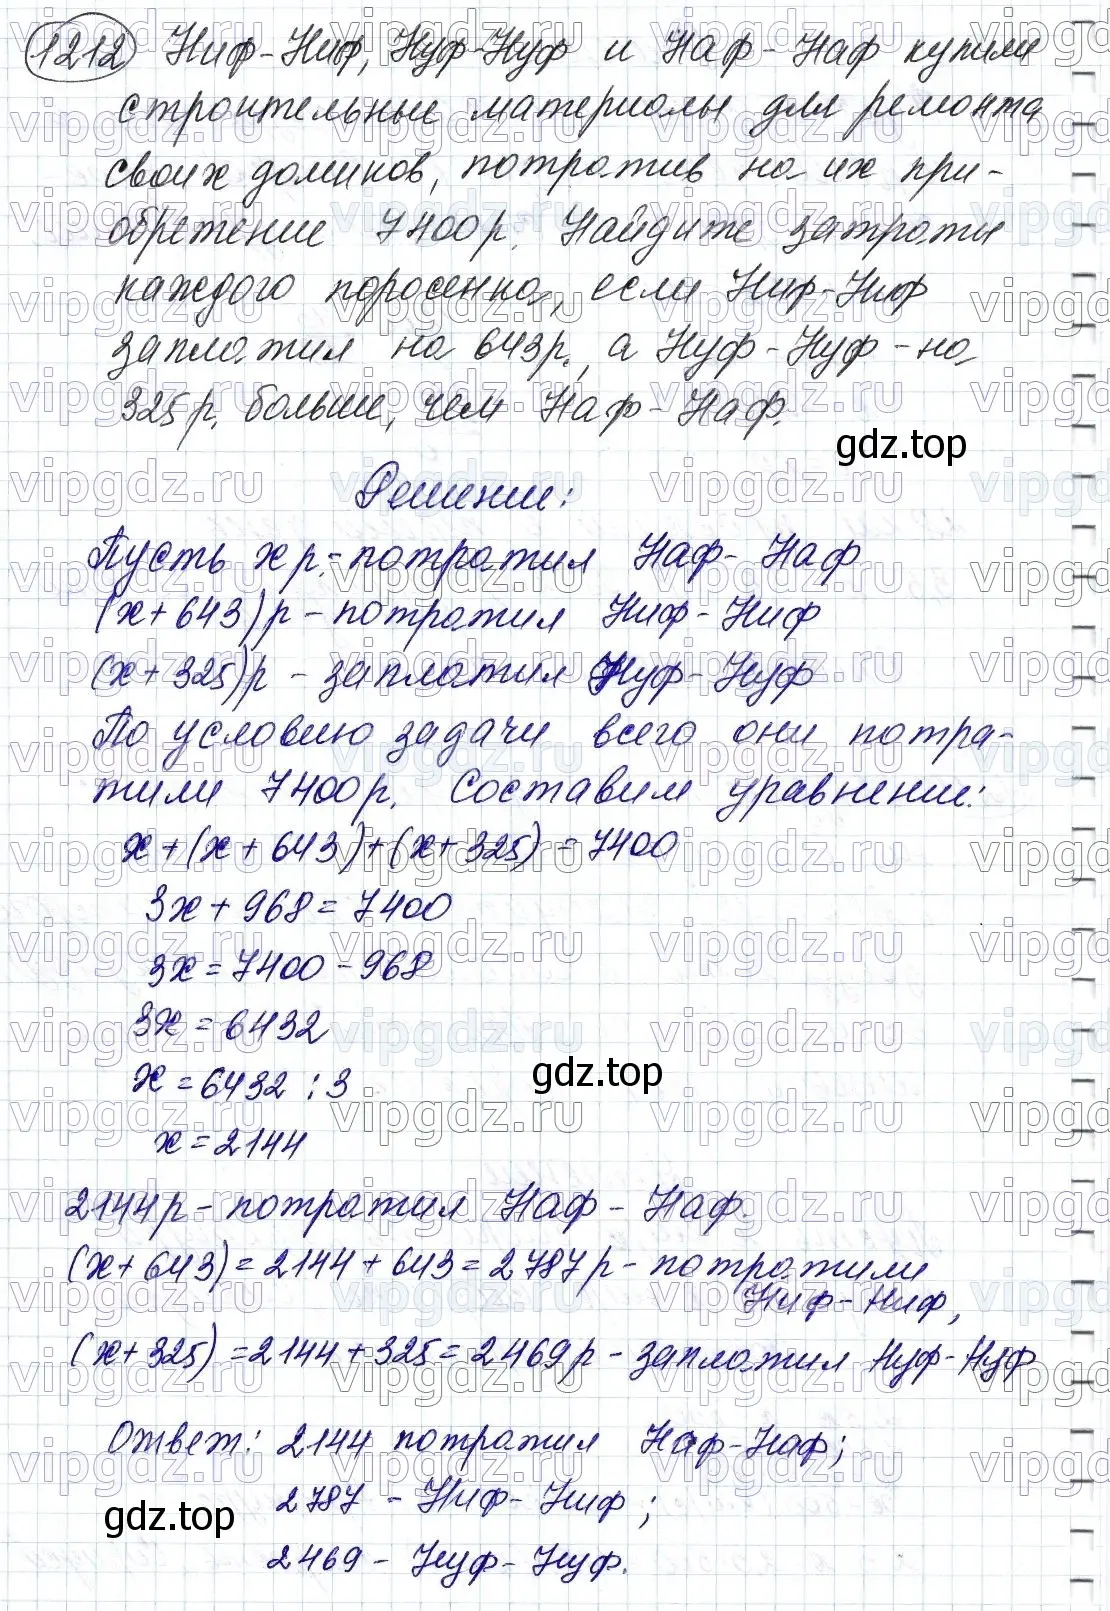 1212 Ниф-Ниф, Нуф-Нуф и Наф-Наф купили
строительные материалы для ремонта
своих домиков, потратив на их при-
обретение 7400 р. Найдите затраты
каждого поросенка, если Ниф-Ниф
заплатил на 643 р., а Нуф-Нуф - на
325 р. больше, чем Наф-Наф.
gdz.top
Решение:
Пусть x р. - потратил Наф-Наф
(x + 643) р - потратил Ниф-Ниф
(x + 325) р - заплатил Нуф-Нуф
По условию задачи всего они потра-
тили 7400 р. Составим уравнение:
x + (x + 643) + (x + 325) = 7400
3x + 968 = 7400
3x = 7400 - 968
3x = 6432
x = 6432 : 3
gdz.top
x = 2144
2144 р - потратил Наф-Наф.
(x + 643) = 2144 + 643 = 2787 р - потратили
Ниф-Ниф,
(x + 325) = 2144 + 325 = 2469 р - заплатил Нуф-Нуф
Ответ: 2144 потратил Наф-Наф;
2787 - Ниф-Ниф;
gdz.top
2469 - Нуф-Нуф.
vipgdz.ru